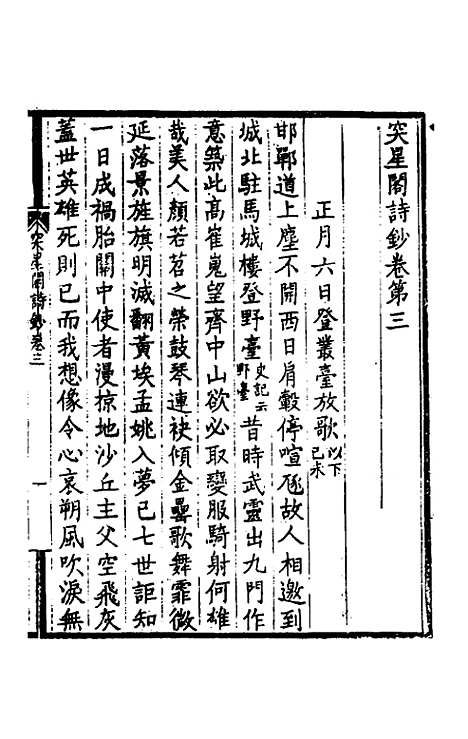 突星閣詩鈔卷第三
正月六日登叢臺放歌以下己未
邯鄲道上塵不開西日肩轂停喧豗故人相邀到
城北駐馬城樓登野臺史記云野臺昔時武靈出九門作
意築此高崔嵬望齊中山欲必取變服騎射何雄
哉美人顏若苕之榮鼓琴連袂傾金罍歌舞霏微
延落景旌旗明滅翻黃埃孟姚入夢已七世詎知
一日成禍胎關中使者漫掠地沙丘主父空飛灰
蓋世英雄死則已而我想像令心哀朔風吹淚無
突星閣詩鈔卷三
一